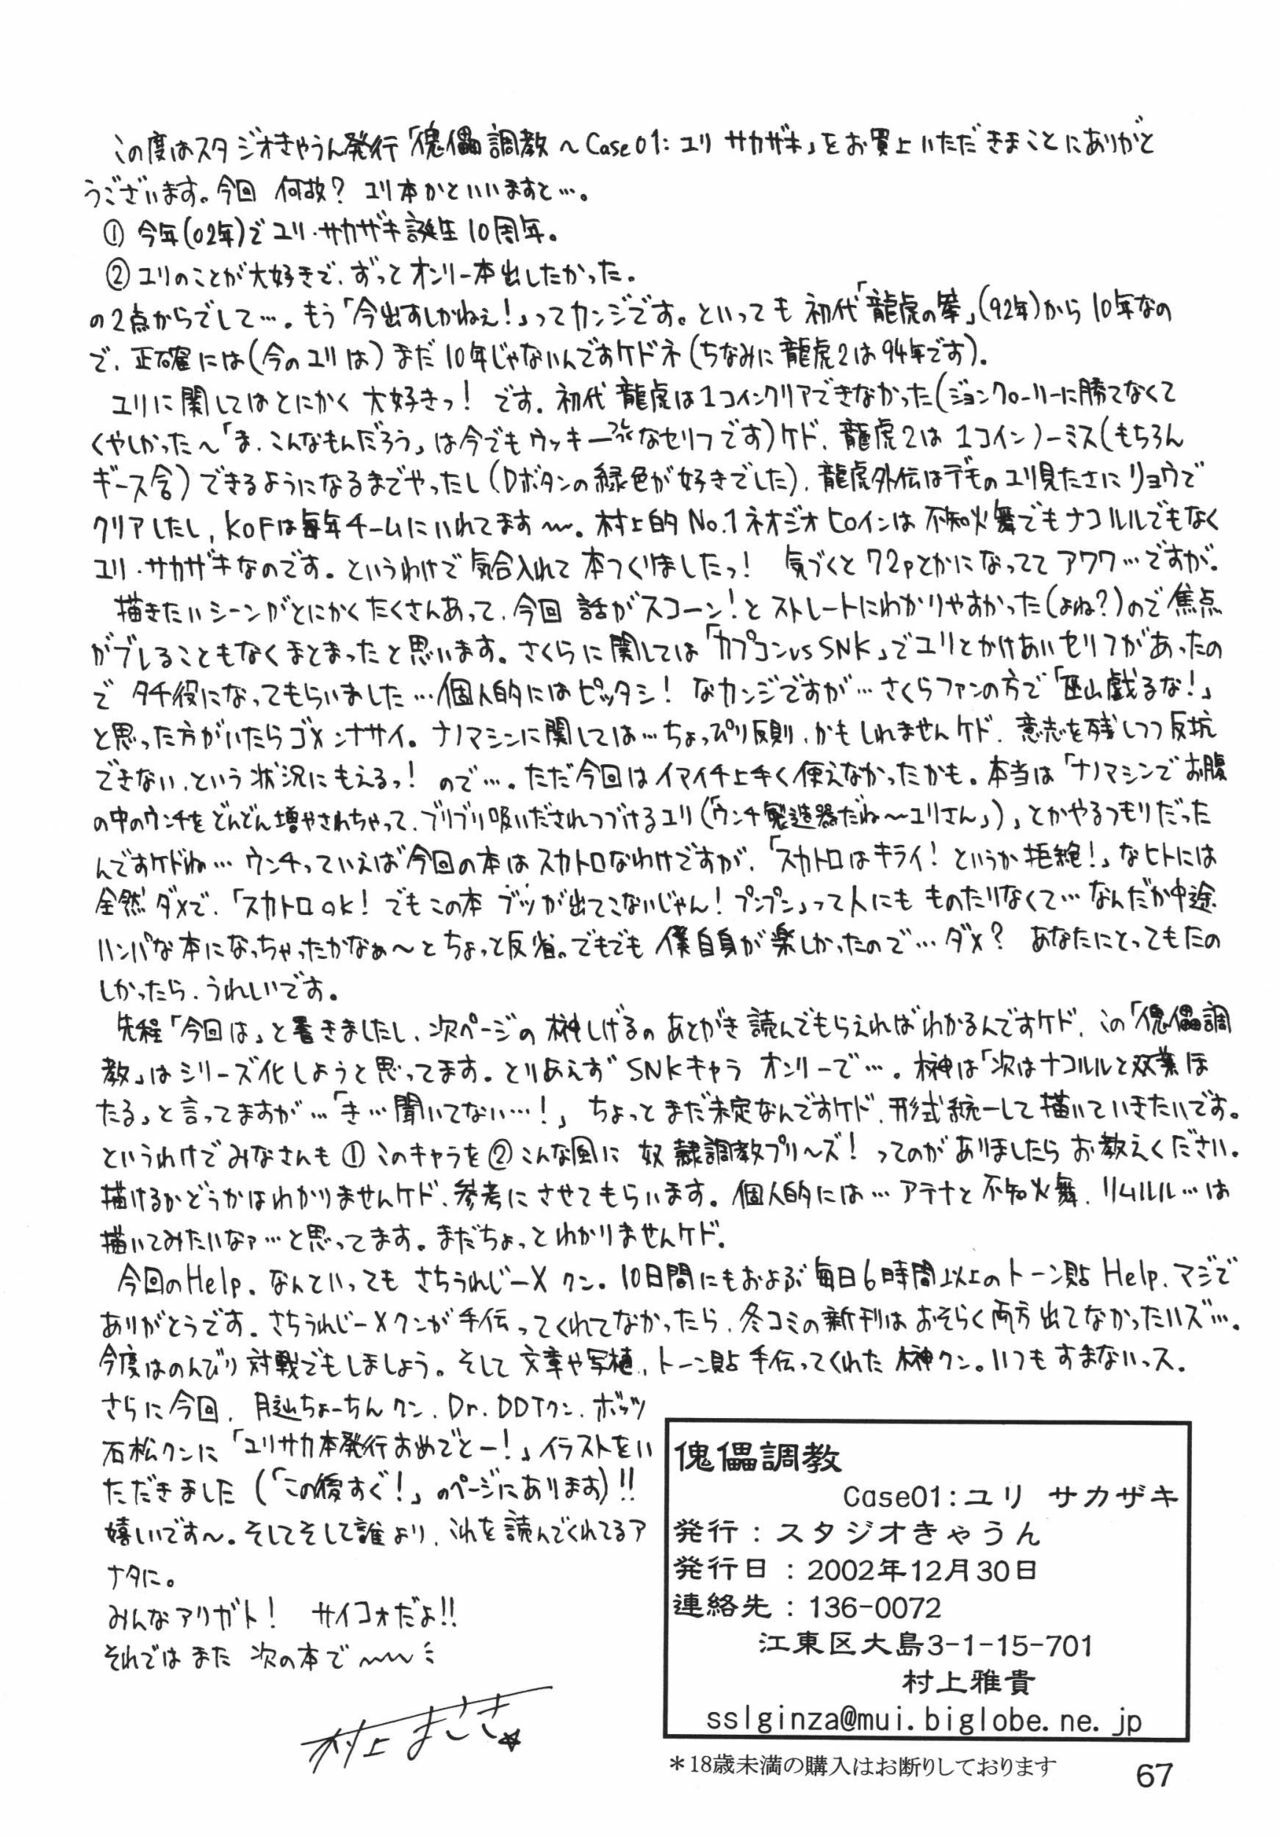 この度はスタジオきゃうん発行「傀儡調教〜Case01:ユリ サカザキ」をお買上いただきまことにありがと
うございます。今回 何故? ユリ本かといいますと…。
① 今年(02年)でユリ・サカザキ誕生10周年。
② ユリのことが大好きで、ずっとオンリー本出したかった。
の2点からでして…。もう「今出すしかねぇ!」ってカンジです。といっても 初代「龍虎の拳」(92年)から10年なの
で、正確には(今のユリは)まだ10年じゃないんですケドネ(ちなみに龍虎2は94年です)。
ユリに関してはとにかく 大好きっ! です。初代 龍虎は1コインクリアできなかった(ジョンクローリーに勝てなくて
くやしかった〜「ま、こんなもんだろう」は今でもウッキーなセリフです)ケド、龍虎2は 1コインノーミス(もちろん
ギース含)できるようになるまでやったし(Dボタンの緑色が好きでした)、龍虎外伝はデモのユリ見たさにリョウで
クリアしたし、KOFは毎年チームにいれてます〜。村上的No.1ネオジオヒロインは不知火舞でもナコルルでもなく
ユリ・サカザキなのです。というわけで気合入れて本つくりましたっ! 気づくと72pとかになっててアワワ…ですが。
描きたいシーンがとにかくたくさんあって、今回 話がスコーン!とストレートにわかりやすかった(よね?)ので焦点
がブレることもなくまとまったと思います。さくらに関しては「カプコンvsSNK」でユリとかけあいセリフがあったの
で タチ役になってもらいました…個人的にはピッタシ! なカンジですが…さくらファンの方で「巫山戯るな!」
と思った方がいたらゴメンナサイ。ナノマシンに関しては…ちょっぴり反則、かもしれませんケド、意志を残しつつ反抗
できない、という状況にもえるっ! ので…。ただ今回はイマイチ上手く使えなかったかも。本当は「ナノマシンでお腹
の中のウンチをどんどん増やされちゃって、ブリブリ吸いだされつづけるユリ(「ウンチ製造器だね〜ユリさん」)」とかやるつもりだった
んですケドね…ウンチっていえば今回の本はスカトロなわけですが、「スカトロはキライ! というか拒絶!」なヒトには
全然ダメで、「スカトロok! でもこの本 ブツが出てこないじゃん! プンプン」って人にも ものたりなくて…なんだか中途
ハンパな本になっちゃったかなぁ〜とちょっと反省。でもでも 僕自身が楽しかったので…ダメ? あなたにとってもたの
しかったら、うれしいです。
先程「今回は」と書きましたし、次ページの榊しげるのあとがき読んでもらえればわかるんですケド、この「傀儡調
教」はシリーズ化しようと思ってます。とりあえずSNKキャラ オンリーで…。榊は「次はナコルルと双葉ほ
たる」と言ってますが…「き…聞いてない…!」 ちょっとまだ未定なんですケド、形式統一して描いていきたいです。
というわけでみなさんも ① このキャラを ② こんな風に 奴隷調教プリ〜ズ! ってのがありましたらお教えください。
描けるかどうかはわかりませんケド、参考にさせてもらいます。個人的には…アテナと不知火舞、リムルル…は
描いてみたいなァ…と思ってます。まだちょっとわかりませんケド。
今回のHelp。なんていっても さちうれじーXクン。10日間にもおよぶ毎日6時間以上のトーン貼Help、マジで
ありがとうです。さちうれじーXクンが手伝ってくれてなかったら、冬コミの新刊はおそらく両方出てなかったハズ…。
今度はのんびり対戦でもしましょう。そして 文章や写植、トーン貼手伝ってくれた 榊クン。いつもすまないっス。
さらに今回、月辿ちょーちんクン、Dr.DDTクン、ボッツ
石松クンに「ユリサカ本発行おめでとー!」イラストをい
ただきました(「この後すぐ!」のページにあります)!!
嬉しいです〜。そしてそして誰より、これを読んでくれてるア
ナタに。
みんなアリガト! サイコォだよ!!
それでは また 次の本で〜
村上まさき☆
傀儡調教
Case01:ユリ サカザキ
発行:スタジオきゃうん
発行日:2002年12月30日
連絡先:136-0072
江東区大島3-1-15-701
村上雅貴
sslginza@mui.biglobe.ne.jp
*18歳未満の購入はお断りしております
67